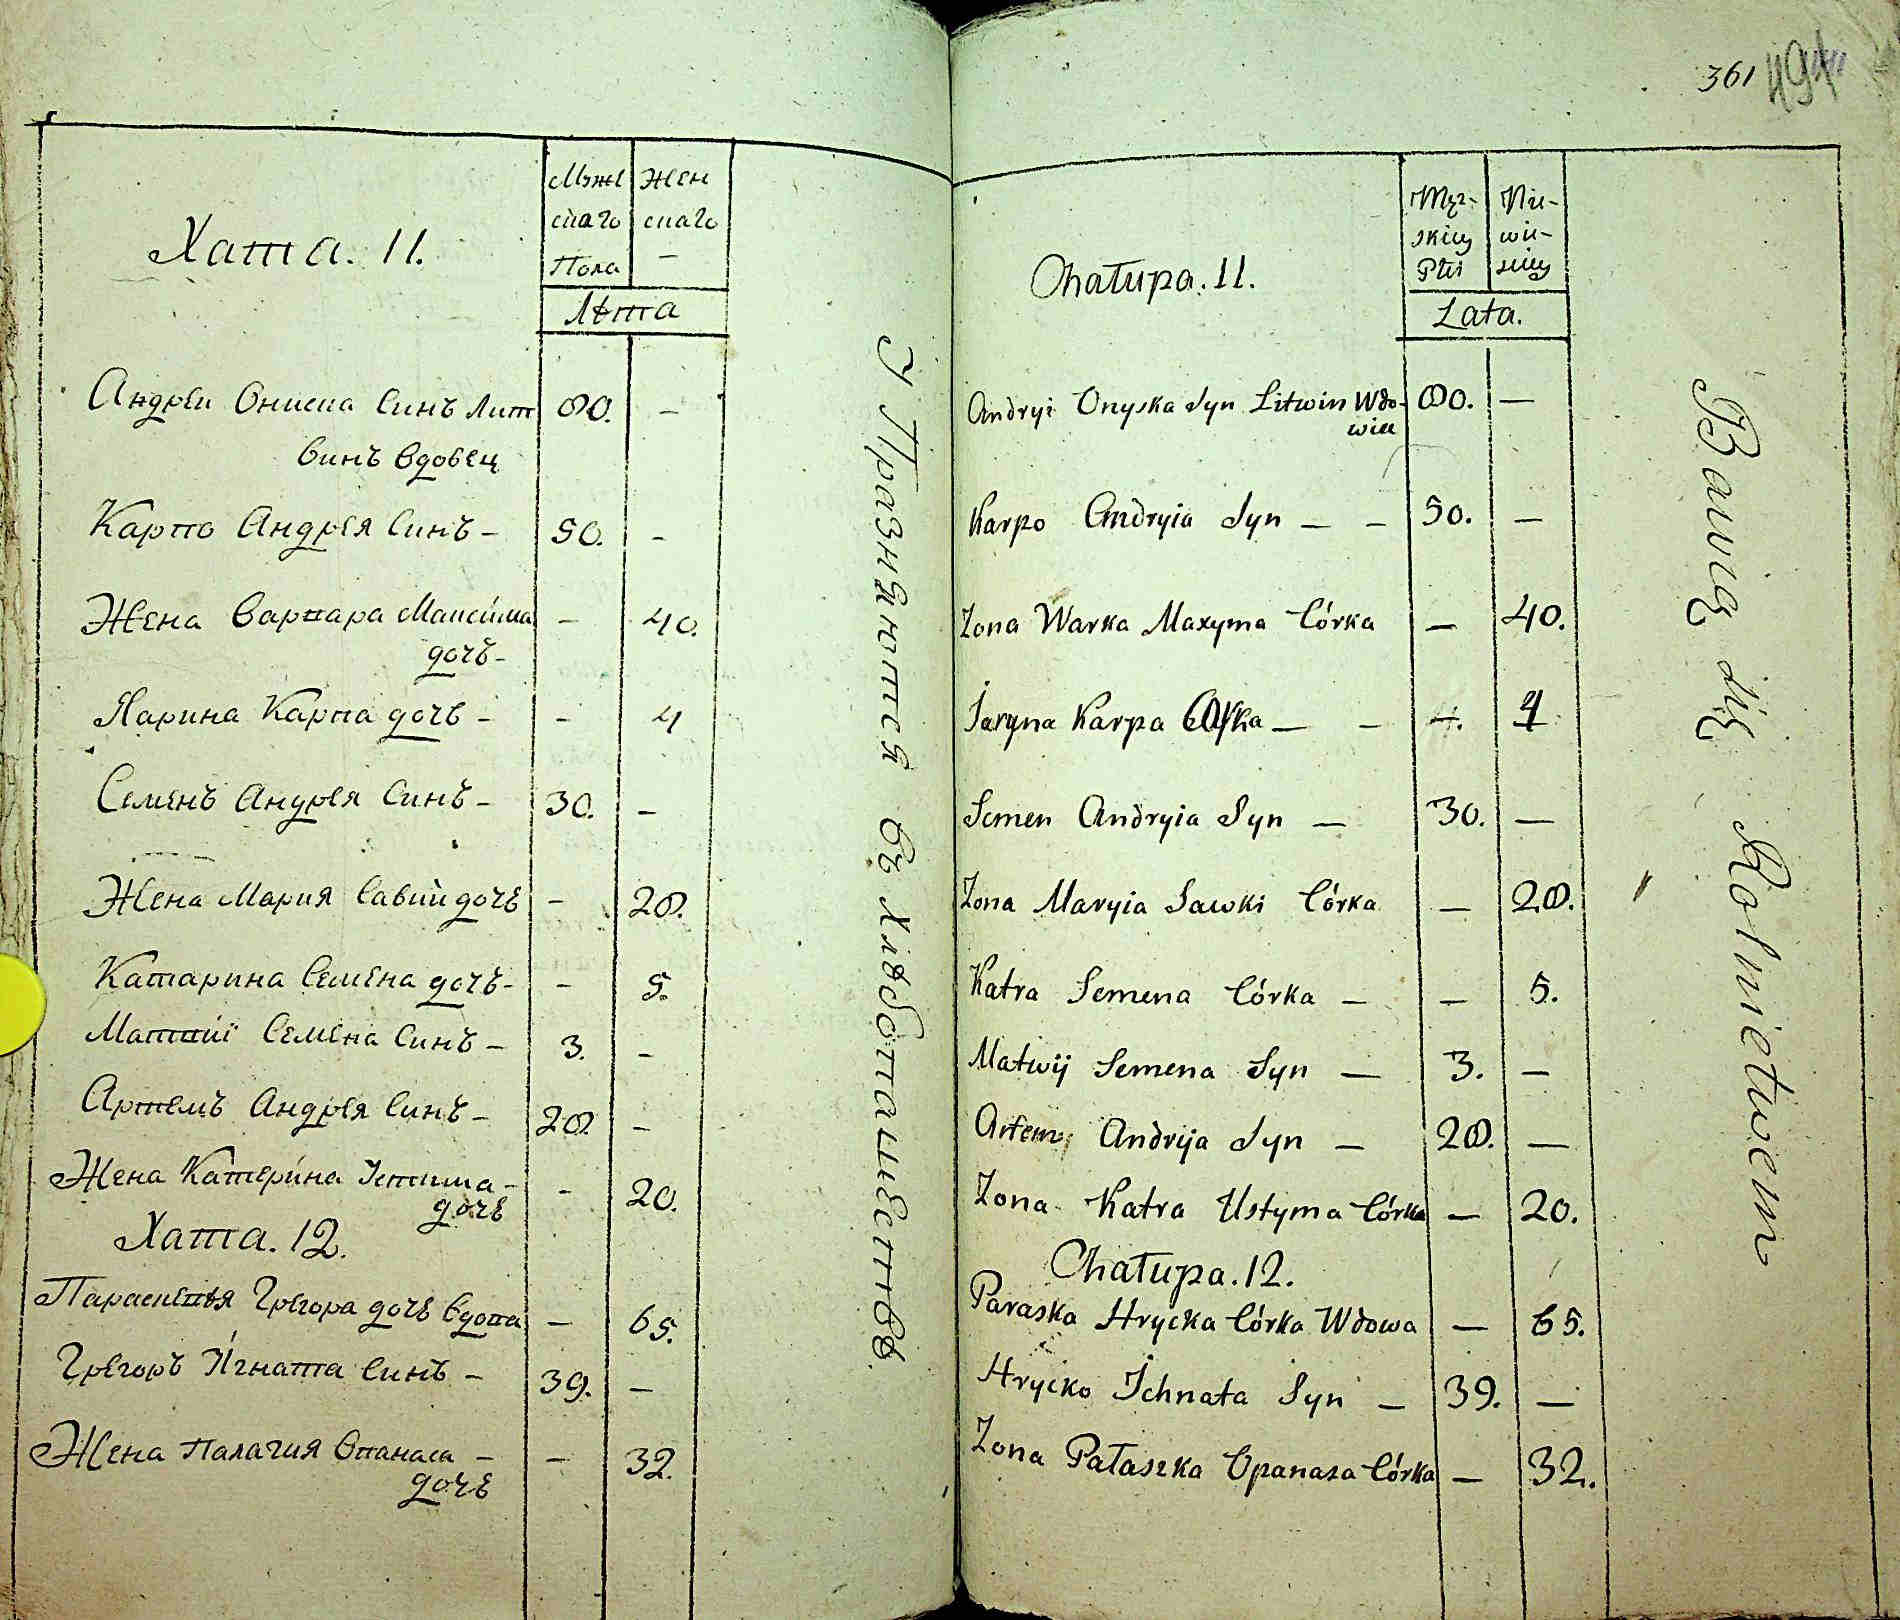 361 494
Хата. 11.
Мъже Жен
скаго скаго
Пола —
Лѣта
Андрѣи Ониска Синъ Лит 80. —
винъ Вдовец
Карпо Андрѣя Синъ — 50. —
Жена Варвара Максима — 40.
дочь —
Ярина Карпа дочь — — 4
Семенъ Андрѣя Синъ — 30. —
Жена Мария Савки дочь — 28.
Катарина Семена дочь — — 5.
Матвий Семена Синъ — 3. —
Артемъ Андрѣя Синъ — 28 —
Жена Катерина Устима — — 20.
дочь
Хата. 12.
Параскевья Грегора дочь Вдова — 65.
Грегоръ Игната Синъ — 39. —
Жена Палагия Опанаса — — 32.
дочь
У Празняются въ хлѣбопашествѣ
Chałupa. 11.
Męz- Nie-
skiey wie-
Płci sciey
Lata.
Andryi Onyska Syn Litwin Wdo- 80. —
wiec
Karpo Andryia Syn — — 50. —
Zona Warka Maxyma Córka — 40.
Jaryna Karpa Córka — — 4. 4
Semen Andryia Syn — 30. —
Zona Maryia Sawki Córka — 28.
Katra Semena Córka — — 5.
Matwij Semena Syn — 3. —
Artem Andrija Syn — 28. —
Zona Katra Ustyma Córka — 20.
Chałupa. 12.
Paraska Hrycka Córka Wdowa — 65.
Hrycko Ichnata Syn — 39. —
Zona Pałaszka Opanasa Córka — 32.
Bawią się Rolnictwem